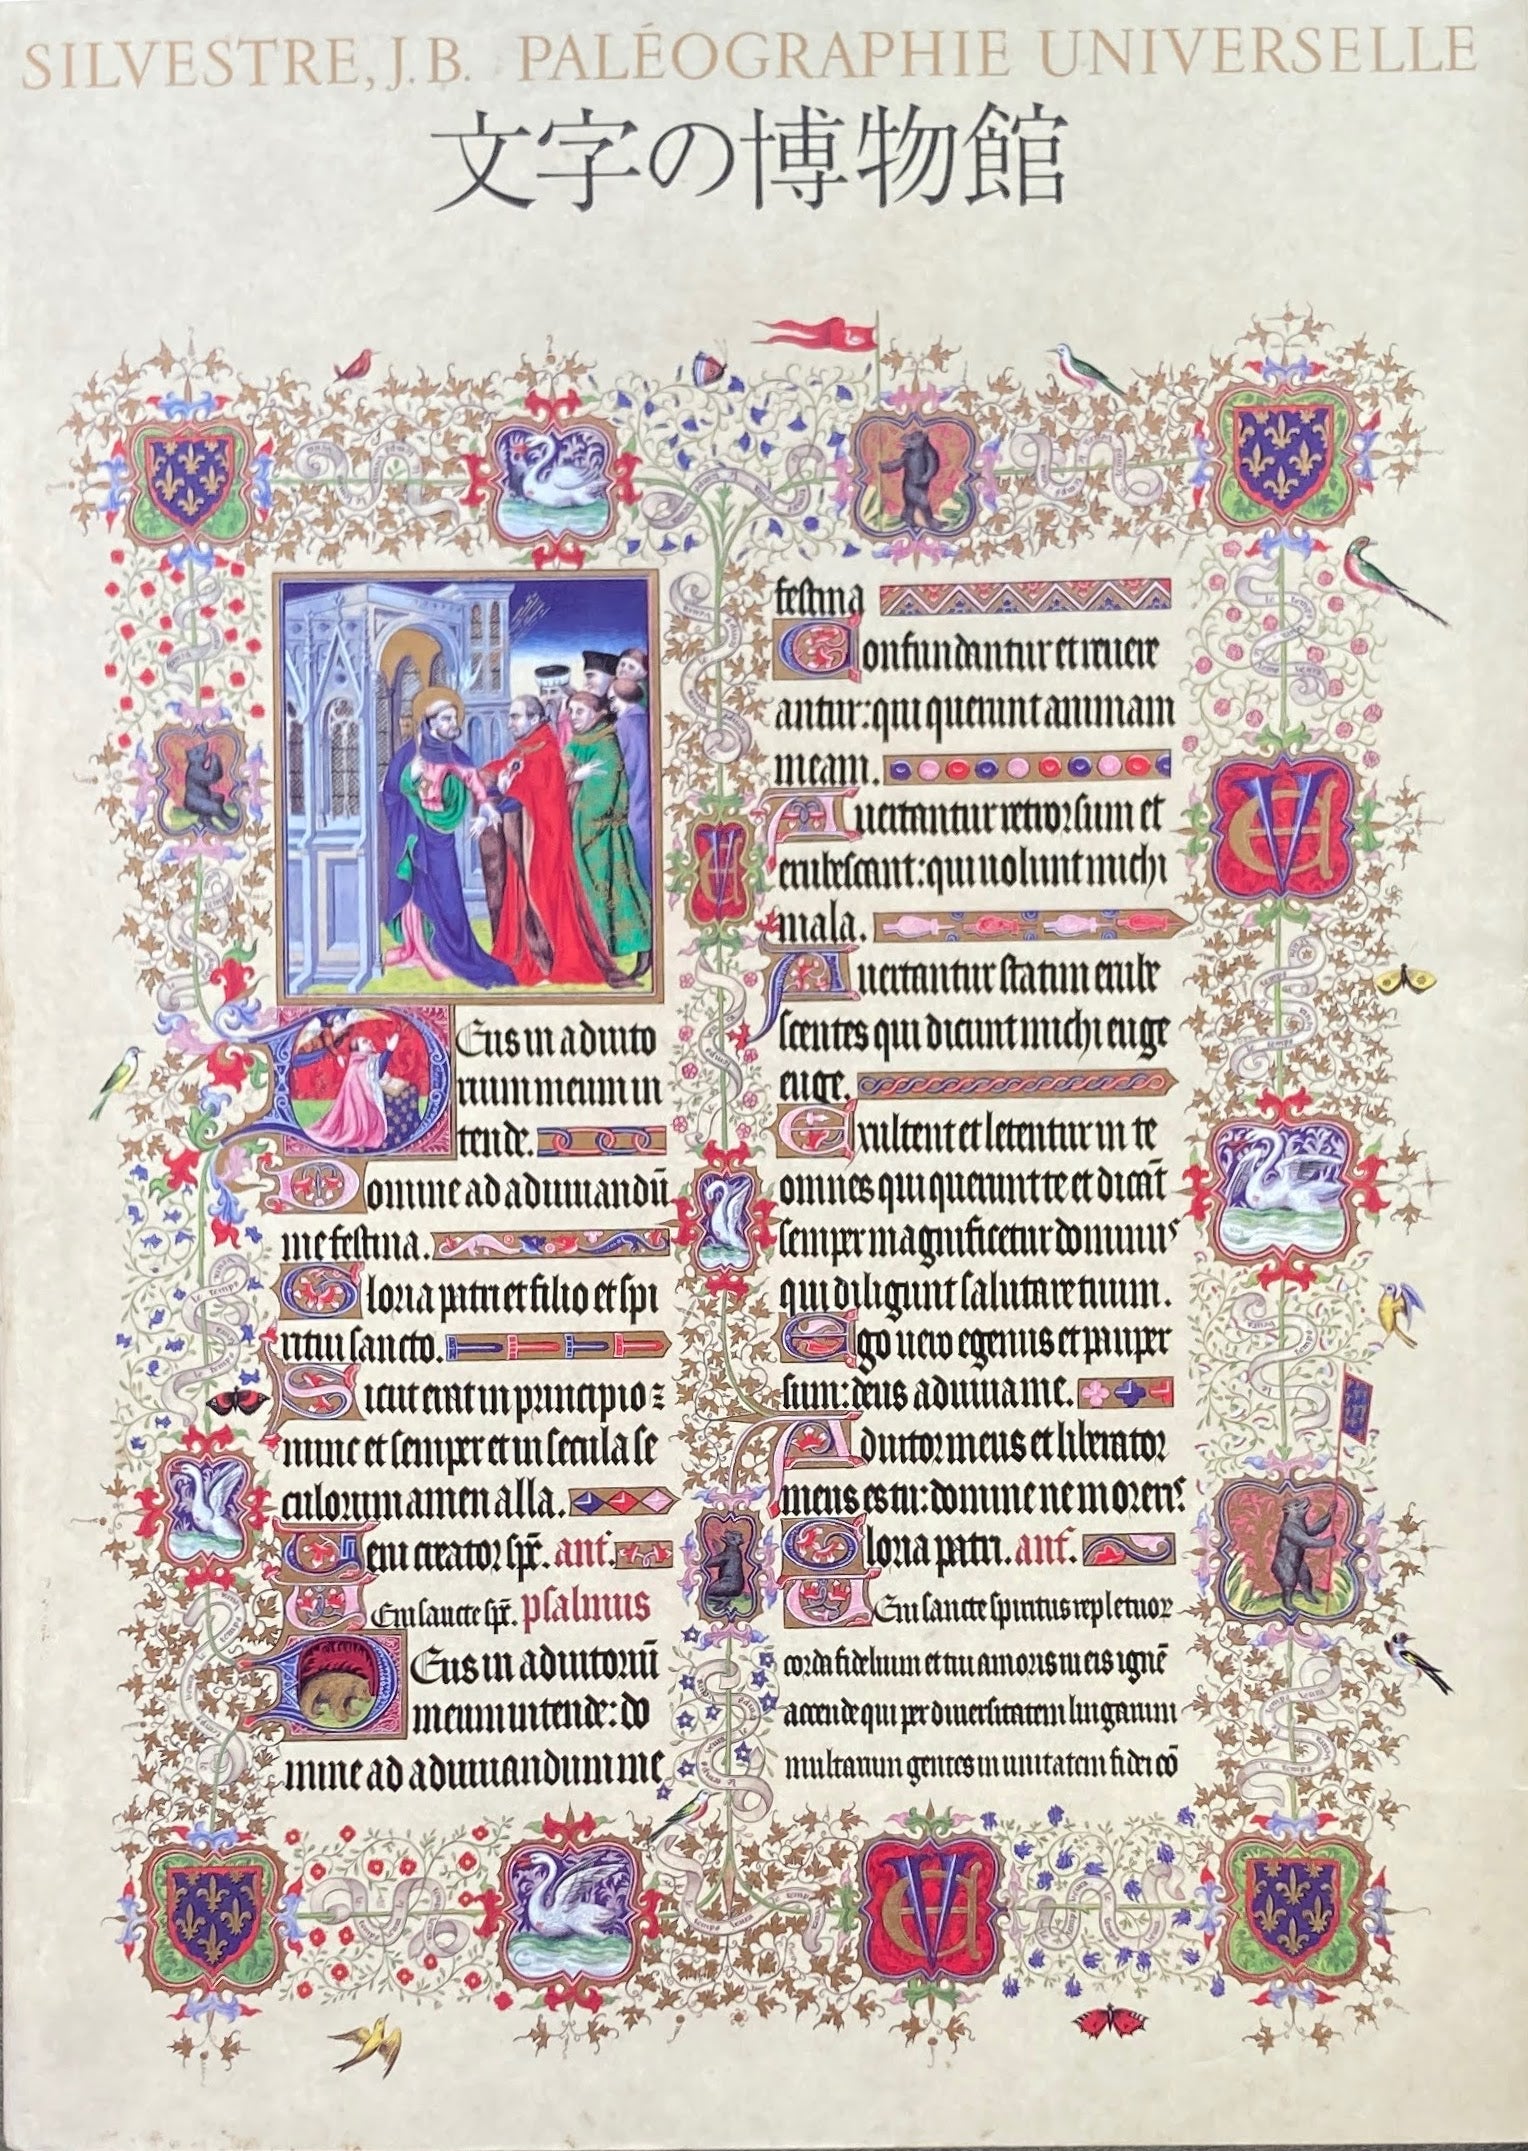 SILVESTRE, J. B. PALÉOGRAPHIE UNIVERSELLE
文字の博物館
Deus in adiuto
rium meum in
tende.
Domine ad adiuuandū
me festina.
Gloria patri et filio et spi
ritui sancto.
Sicut erat in principio:
nunc et semper et in secula se
culorum amen alla.
Ueni creator spc̄. ant̄.
Ueni sancte spc̄. psalmus
Deus in adiutoriū
meum intende: do
mine ad adiuuandum me
festina
Confundantur et reuere
antur: qui querunt animam
meam.
Auertantur retrorsum et
erubescant: qui uolunt michi
mala.
Auertantur statim erube
scentes qui dicunt michi euge
euge.
Exultent et letentur in te
omnes qui querunt te et dicāt
semper magnificetur dominus
qui diligunt salutare tuum.
Ego uero egenus et pauper
sum: deus adiuua me.
Adiutor meus et liberator
meus es tu: domine ne moreris.
Gloria patri. ant̄.
Ueni sancte spiritus reple tuor
corda fidelium et tui amoris in eis ignē
accende qui per diuersitatem linguarum
multarum gentes in unitatem fidei cō